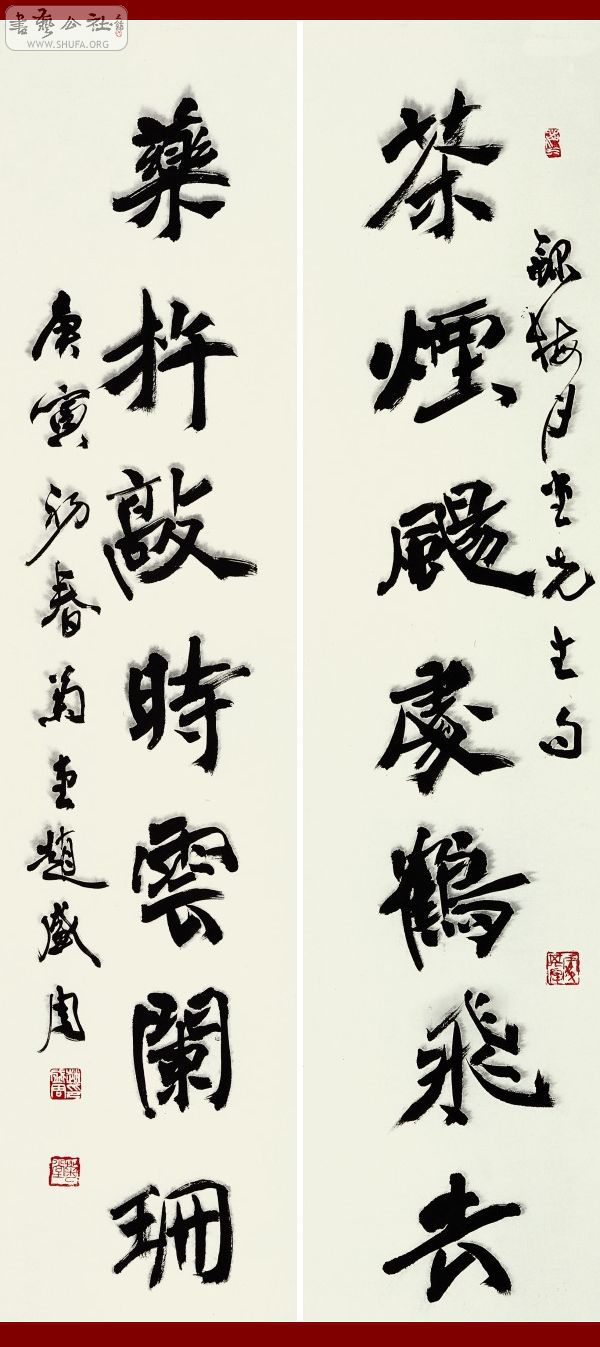 書藝公社
WWW.SHUFA.ORG
梅月堂先生句
茶煙颺處鶴飛去
藥杵敲時雲闌珊
庚寅初春菊堂趙盛周